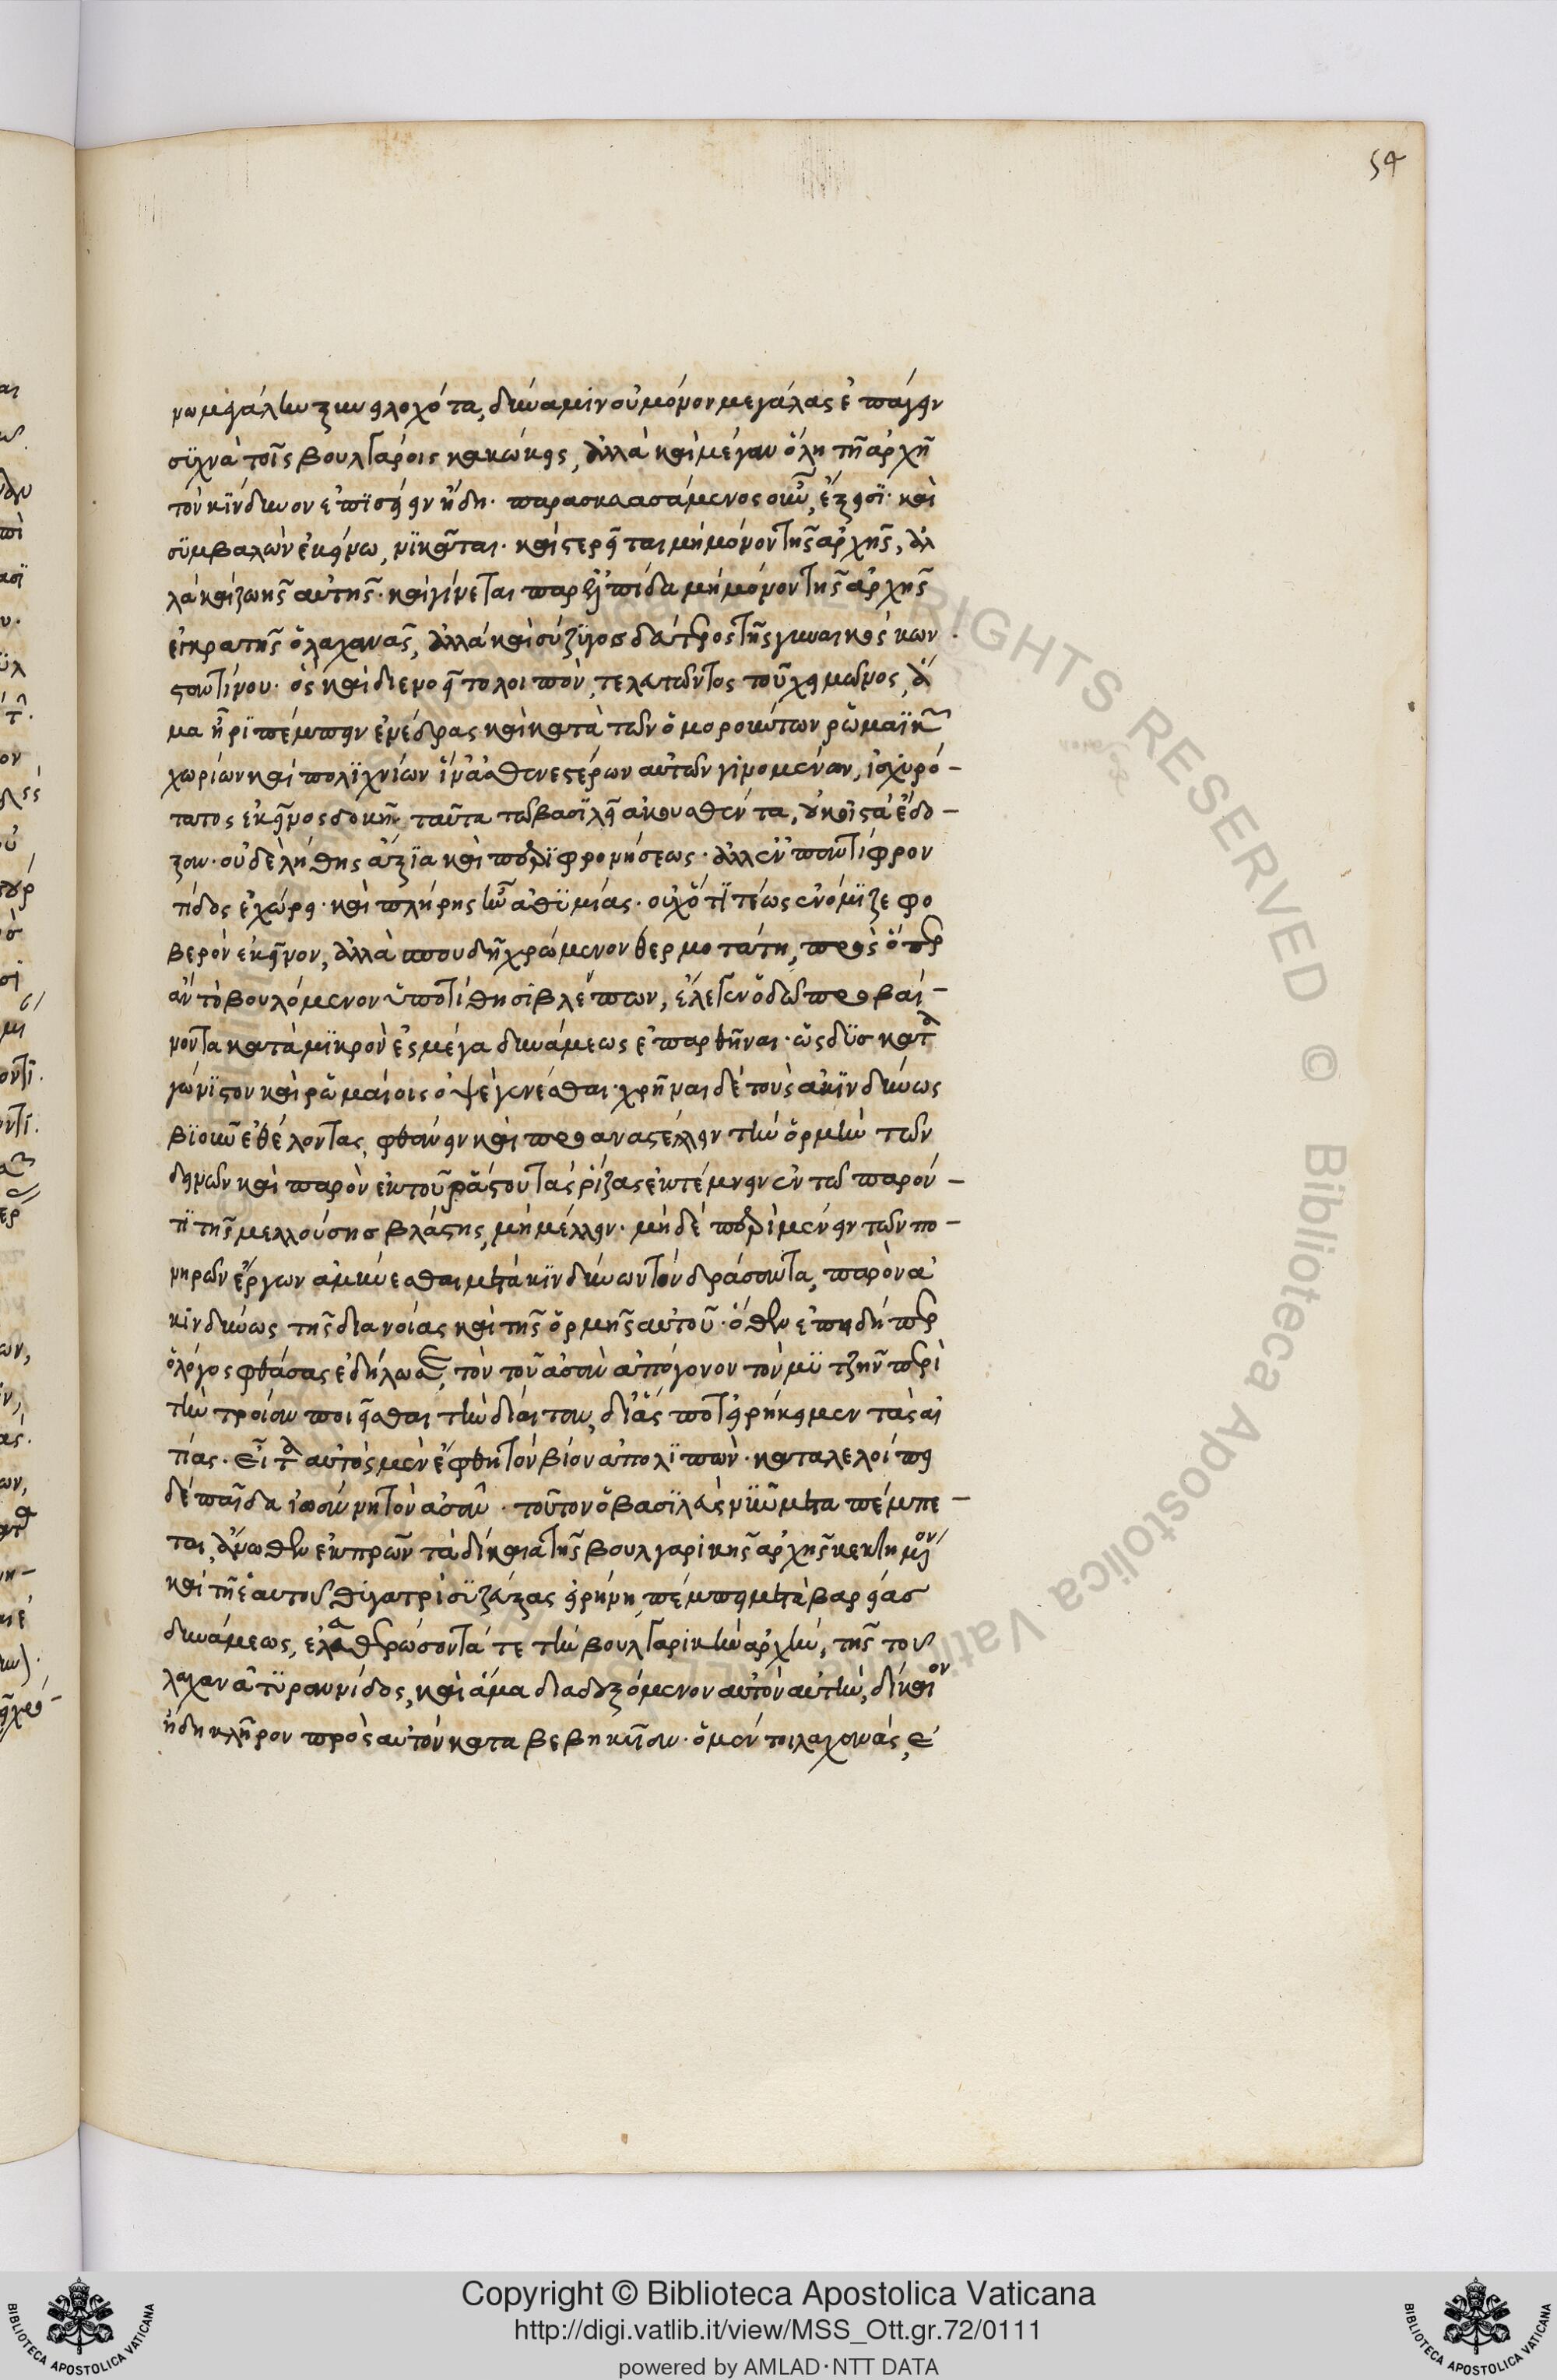 54
νωμεγάλην ξυνειλοχότα, δύναμιν οὐ μόνον μεγάλας ἐπάγειν
συχνὰ τοῖς βουλγάροις κακώσεις, ἀλλὰ καὶ μέγαν ὅλη τῆ ἀρχῆ
τὸν κίνδυνον ἐπισείειν ἤδη. παρασκευασάμενος οὖν, ἔξεισι. καὶ
συμβαλὼν ἐκείνω, νικᾶται. καὶ στερεῖται μὴ μόνον τῆς ἀρχῆς, ἀλ
λὰ καὶ ζωῆς αὐτῆς. καὶ γίνεται παρ' ἐλπίδα μὴ μόνον τῆς ἀρχῆς
ἐγκρατὴς ὁ λαχανᾶς, ἀλλὰ καὶ σύζυγος δεύτερος τῆς γυναικὸς κων
σταντίνου. ὃς καὶ διενοεῖτο λοιπὸν, τελευτῶντος τοῦ χειμῶνος, ἅ
μα ἦρι πέμπειν ἐνέδρας καὶ κατὰ τῶν ὁμορούντων ῥωμαϊκῶν
χωρίων καὶ πολιχνίων ἵν' ἀσθενεστέρων αὐτῶν γινομένων, ἰσχυρό-
τατος ἐκεῖνος δοκῆ. ταῦτα τῶ βασιλεῖ ἀκουσθέντα, οὐκ οἰστὰ ἔδο-
ξαν. οὐδὲ λήθης ἄξια καὶ περιφρονήσεως. ἀλλ' ἐν παντὶ φρον
τίδος ἐχώρει. καὶ πλήρης ἦν ἀθυμίας. οὐχ ὅτι τέως ἐνόμιζε φο
βερὸν ἐκεῖνον, ἀλλὰ σπουδῆ χρώμενον θερμοτάτη, πρὸς ὅπερ
ἂν τὸ βουλόμενον ὑποτίθησι βλέπων, ἔλεγεν ὁδῶ προβαί-
νοντα κατὰ μικρὸν ἐς μέγα δυνάμεως ἐπαρθῆναι. ὡς δυσκατα
γώνιστον καὶ ῥωμαίοις ὀψὲ γενέσθαι. χρῆναι δὲ τοὺς ἀκινδύνως
βιοῦν ἐθέλοντας, φθάνειν καὶ προαναστέλλειν τὴν ὁρμὴν τῶν
δεινῶν καὶ παρὸν ἐκ τοῦ ῥᾴστου τὰς ῥίζας ἐκτέμνειν ἐν τῶ παρόν-
τι τῆς μελλούσης βλάστης, μὴ μέλλειν. μὴ δὲ περιμένειν τῶν πο-
νηρῶν ἔργων ἀμύνεσθαι μετὰ κινδύνων τὸν δράσαντα, παρὸν ἀ
κινδύνως τῆς διανοίας καὶ τῆς ὁρμῆς αὐτοῦ. ὅθεν ἐπειδήπερ
ὁ λόγος φθάσας ἐδήλωσε, τὸν τοῦ ἀσὰν ἀπόγονον τὸν μυτζῆν περὶ
τὴν τροίαν ποιεῖσθαι τὴν δίαιταν, δι' ἅς ποτ' εἰρήκειμεν τὰς αἰ
τίας. εἶτα αὐτὸς μὲν ἔφθη τὸν βίον ἀπολιπών. καταλελοίπει
δὲ παῖδα ἰωάννη τὸν ἀσάν. τοῦτον ὁ βασιλεὺς νῦν μεταπέμπε-
ται, ἄνωθεν ἐκ πρῶν τὰ δίκαια τῆς βουλγαρικῆς ἀρχῆς κεκτημένον
καὶ τῆ ἑαυτοῦ θυγατρὶ συζεύξας εἰρήνη, πέμπει μετὰ βαρείας
δυνάμεως, ἐλευθερώσοντά τε τὴν βουλγαρικὴν ἀρχὴν, τῆς τοῦ
λαχανᾶ τυραννίδος, καὶ ἅμα διαδεξόμενον αὐτὸν αὐτὴν, δίκαιον
ἤδη κλῆρον πρὸς αὐτὸν καταβεβηκυῖαν. ὁ μέν τοι λαχανᾶς, ἐ
Copyright © Biblioteca Apostolica Vaticana
http://digi.vatlib.it/view/MSS_Ott.gr.72/0111
powered by AMLAD·NTT DATA
BIBLIOTECA APOSTOLICA VATICANA
BIBLIOTECA APOSTOLICA VATICANA